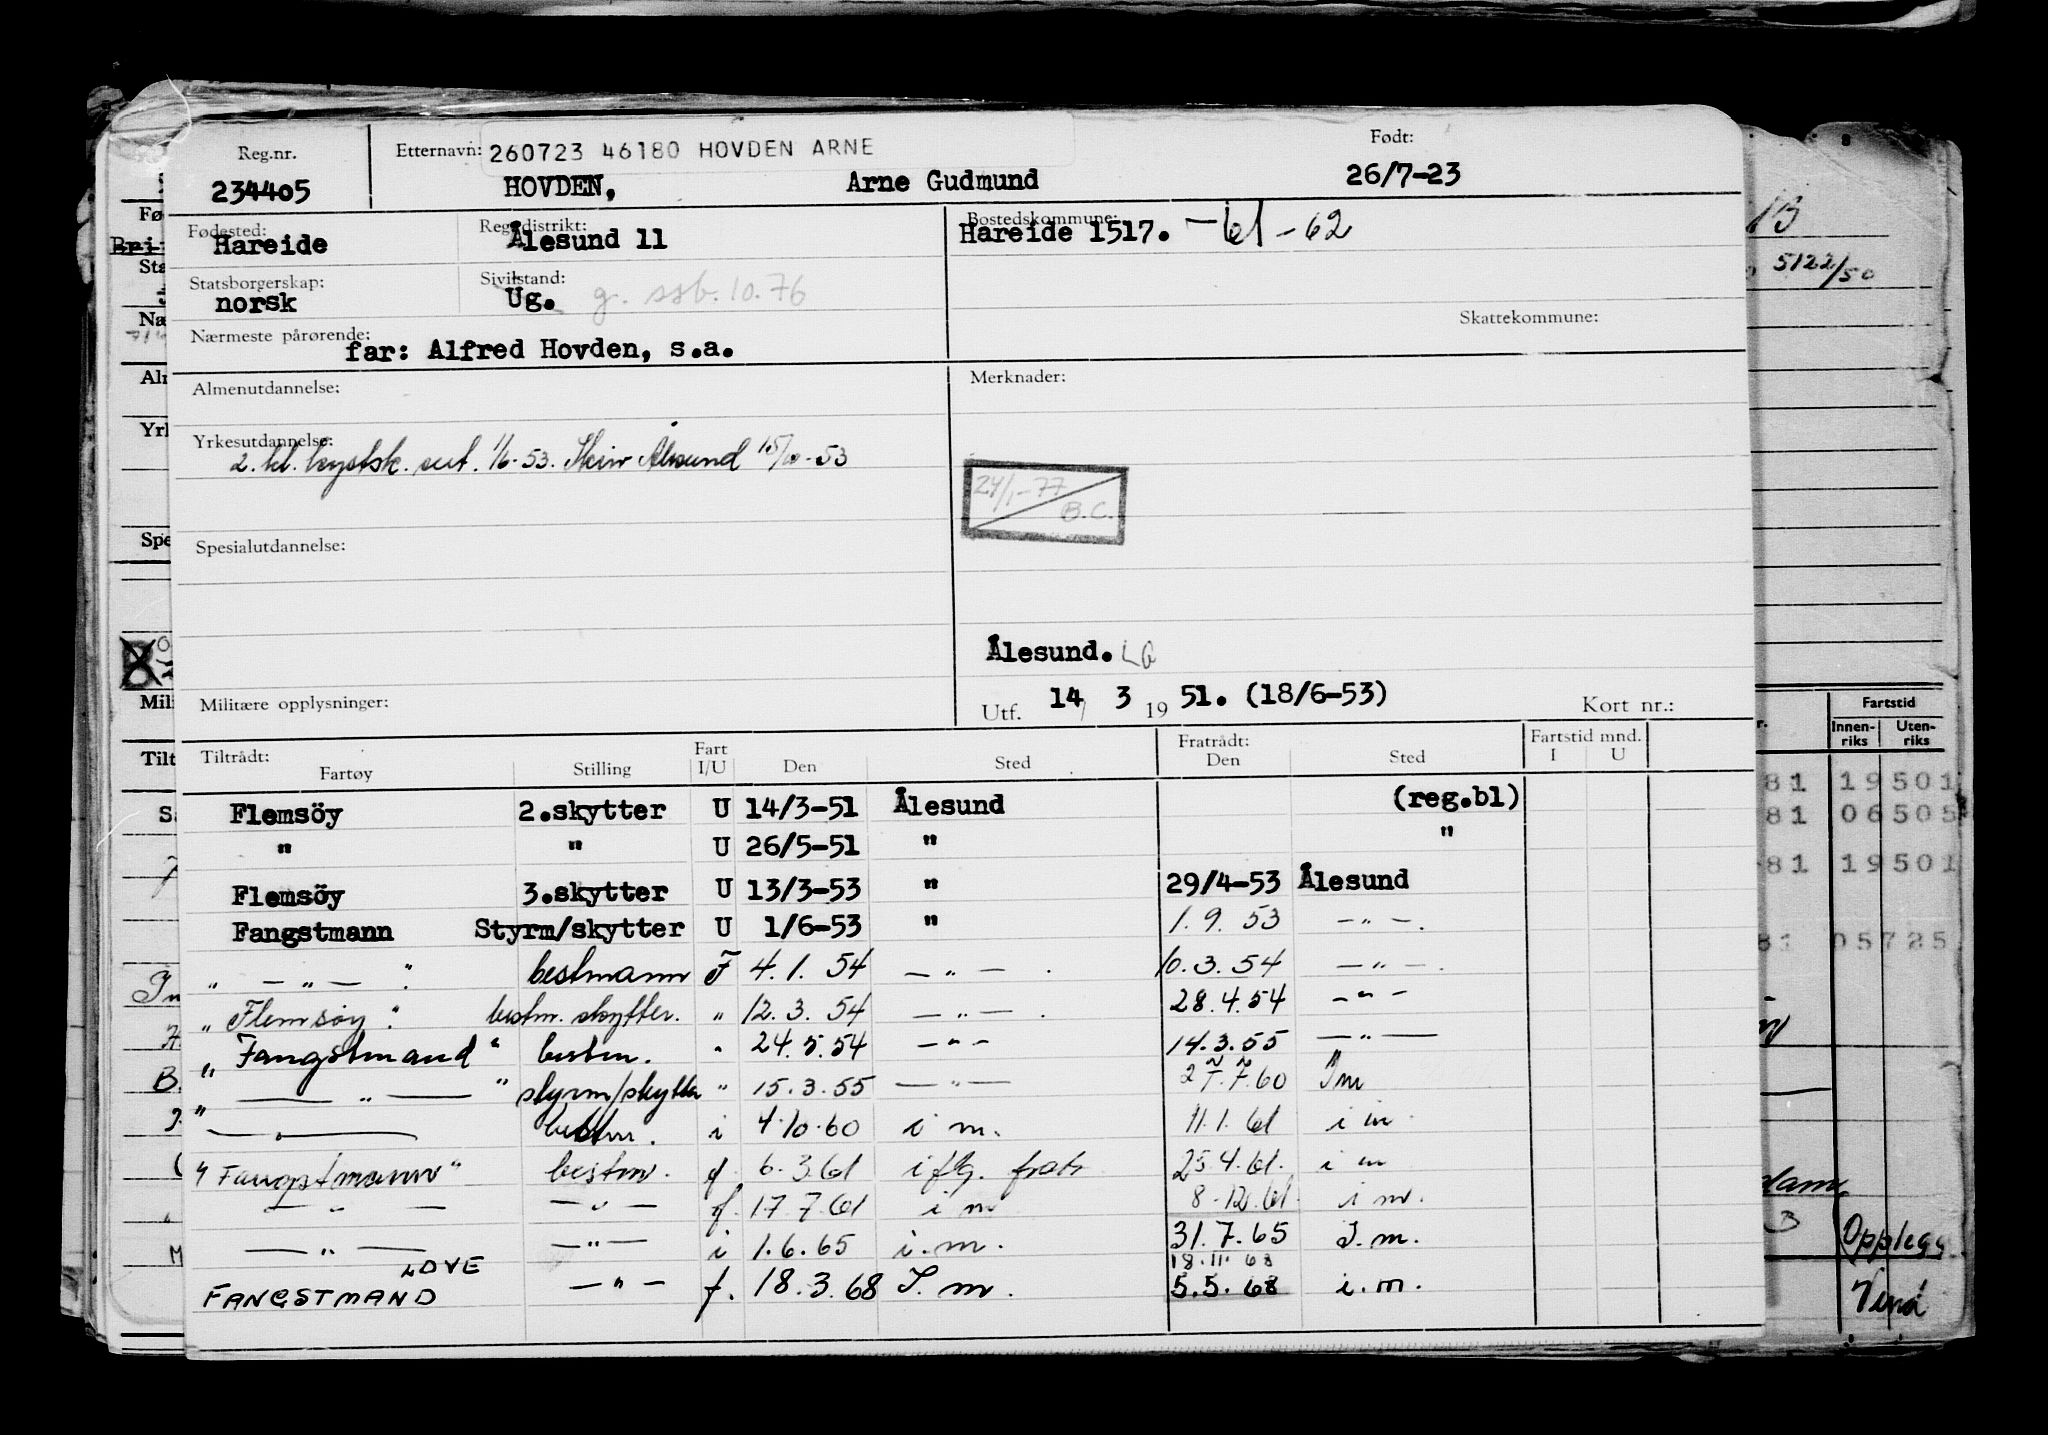 Reg.nr. Etternavn: 260723 46180 HOVDEN ARNE Født:
234405 HOVDEN, Arne Gudmund 26/7-23
Fødested: Reg. distrikt: Bostedskommune:
Hareide Ålesund 11 Hareide 1517. -61-62
Statsborgerskap: Sivilstand:
norsk Ug. g. ssb. 10.76
Skattekommune:
Nærmeste pårørende:
far: Alfred Hovden, s.a.
Almenutdannelse: Merknader:
Yrkesutdannelse:
2. kl. kystsk. sert. 1/6-53. Ålesund -53
24/1-77
B.C.
Spesialutdannelse:
Ålesund.
Militære opplysninger: Utf. 14/ 3 19 51. (18/6-53) Kort nr.:
Tiltrådt: Fart Fratrådt: Fartstid mnd.
Fartøy Stilling I/U Den Sted Den Sted I U
Flemsöy 2.skytter U 14/3-51 Ålesund (reg.bl)
" " U 26/5-51 " "
Flemsöy 3.skytter U 13/3-53 " 29/4-53 Ålesund
Fangstmann Styrm/skytter U 1/6-53 " 1.9. 53 — " —.
" — " — " bestmann F 4.1. 54 — " — . 10.3.54 — " — .
" Flemsöy " bestm. skytter. " 12.3. 54 — " — . 28.4.54 — " —
" Fangstmand " bestm. " 24.5.54 — " — 14.3.55 — " —
" — " — " styrm/skytter " 15.3.55 — " — 27.7.60 I m
— " — bestm. i 4.10.60 i m. 11.1.61 i m
" Fangstmann " bestm. f 6.3.61 i flg. fratr 25.4.61. i m
— " — — " — f. 17.7.61 i m 8.12.61. i m.
— " — — " — i 1.6.65 i.m. 31.7.65 I.m.
LOVE 18.11.68
FANGSTMAND — " — f. 18.3.68 I.m. 5.5.68 i.m.
5122/50
Fartstid
Innen-
riks
Uten-
riks
81 19501
81 06505
81 19501
81 05725
Opplegg